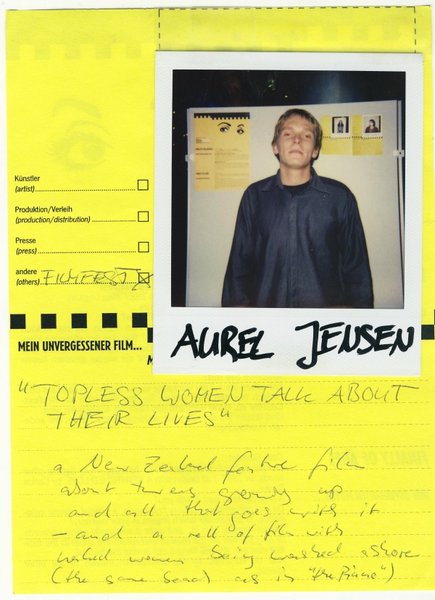 Künstler
(artist)
Produktion/Verleih
(production/distribution)
Presse
(press)
andere
(others) FILMFEST
AUREL JENSEN
MEIN UNVERGESSENER FILM...
"TOPLESS WOMEN TALK ABOUT
THEIR LIVES"
a New Zealand feature film
about growing up
and all that goes with it
– and a roll of film with
naked women being washed ashore
(the same beach as in "the Piano")